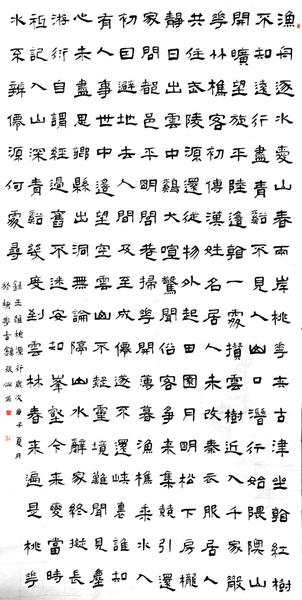 漁舟逐水愛山春兩岸桃華夾古津坐看紅樹
不知遠行盡青谿不見人山口潛行始隈隩山
開曠望旋平陸遙看一處攢雲樹近入千家散
華竹樵客初傳漢姓名居人未改秦衣服居人
共住武陵源還從物外起田園月明松下房櫳
靜日出雲中雞犬喧驚聞俗客爭來集競引還
家問都邑平明閭巷掃華開薄暮漁樵乘水入
初因避地去人間及至成仙遂不還峽裏誰知
有人事世中遙望空雲山不疑靈境難聞見塵
心未盡思鄉縣出洞無論隔山水辭家終擬長
游衍自謂經過舊不迷安知峯壑今來變當時
祇記入山深青谿幾度到雲林春來遍是桃華
水不辨僊源何處尋
錄王維桃源行歲次庚子夏月
於桃李書館張